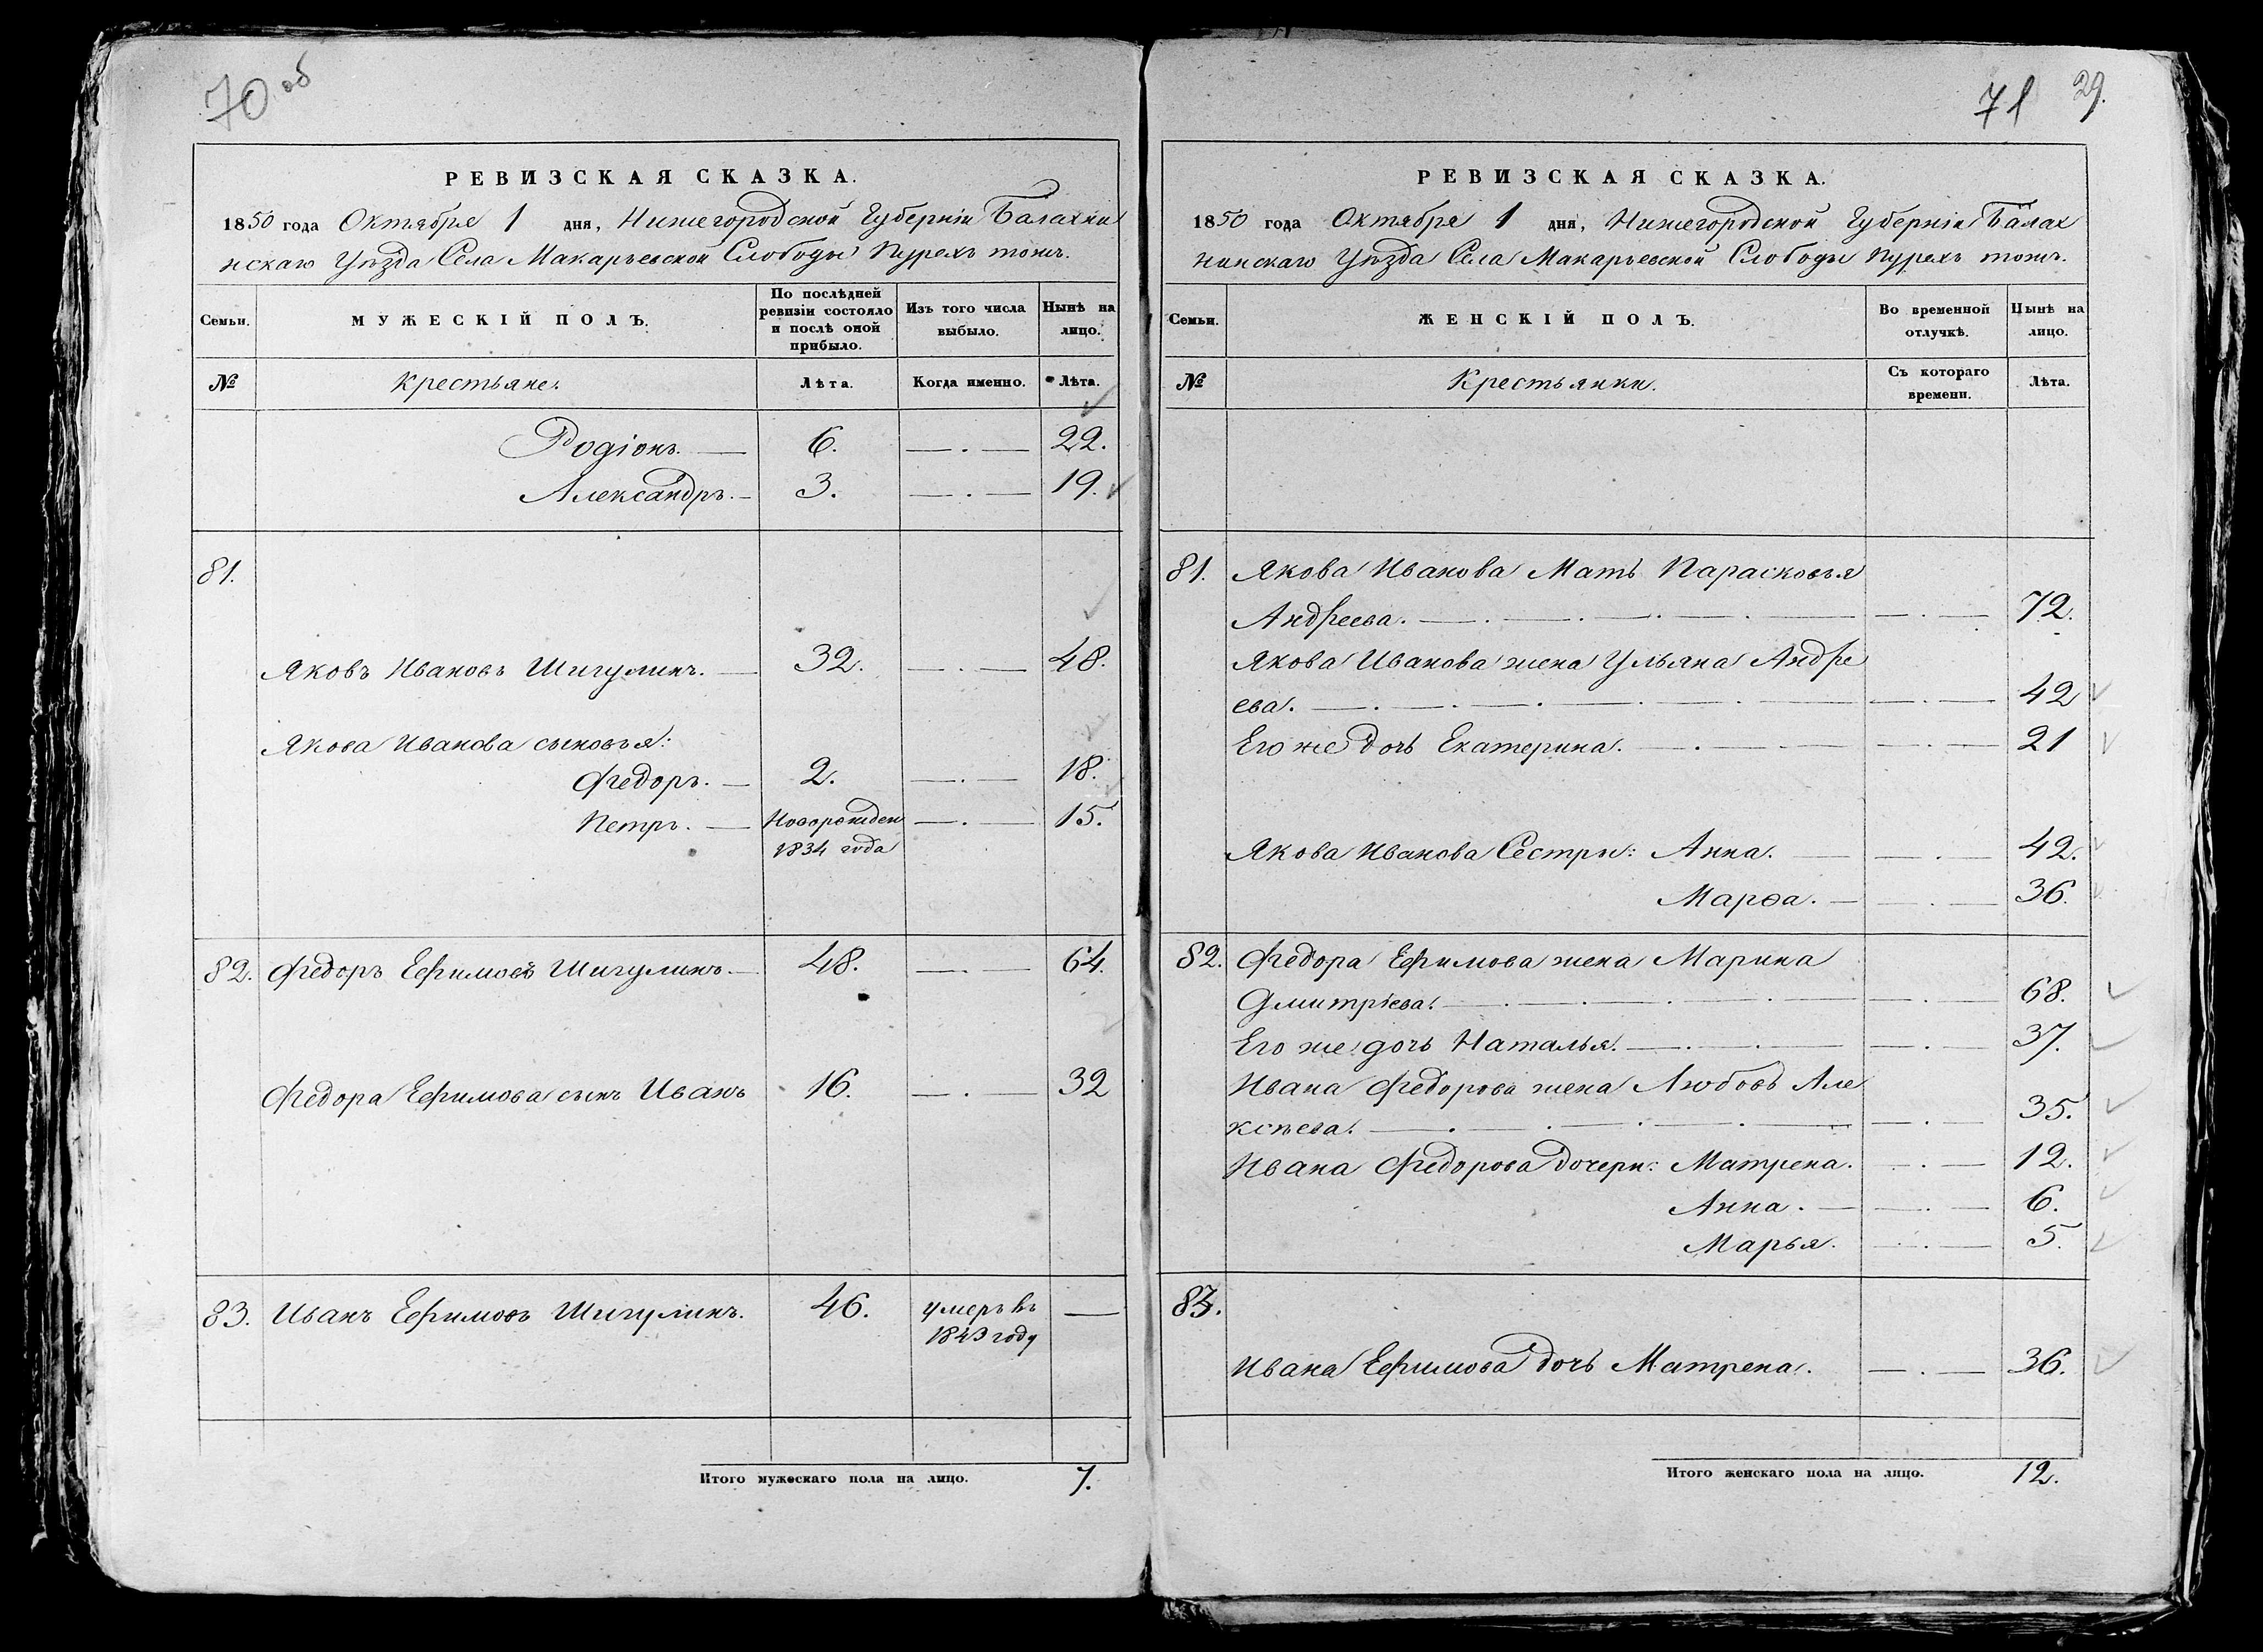 70 об
РЕВИЗСКАЯ СКАЗКА.
1850 года Октября 1 дня, Нижегородской Губерніи Балахни
нскаго Уѣзда Села Макарьевской Слободы Пурехъ тожъ.
Семьи. МУЖЕСКІЙ ПОЛЪ. По послѣдней ревизіи состояло и послѣ оной прибыло. Изъ того числа выбыло. Нынѣ на лицо.
№ Крестьяне. Лѣта. Когда именно. Лѣта.
Родіонъ. — 6. — . — 22.
Александръ. — 3. — . — 19.
81.
Яковъ Ивановъ Шигулинъ. — 32. — . — 48.
Якова Иванова сыновья:
Федоръ. — 2. — . — 18.
Петръ. — Новорожден — . — 15.
1834 года
82. Федоръ Ефимовъ Шигулинъ. — 48. — . — 64.
Федора Ефимова сынъ Иванъ 16. — . — 32
83. Иванъ Ефимовъ Шигулинъ. 46. умеръ въ —
1843 году
Итого мужескаго пола на лицо. 7.
71 29.
РЕВИЗСКАЯ СКАЗКА.
1850 года Октября 1 дня, Нижегородской Губерніи Балах
нинскаго Уѣзда Села Макарьевской Слободы Пурехъ тожъ.
Семьи. ЖЕНСКІЙ ПОЛЪ. Во временной отлучкѣ. Нынѣ на лицо.
№ Крестьянки. Съ котораго времени. Лѣта.
81. Якова Иванова Мать Парасковья
Андреева. — . — . — . — . — — . — 72.
Якова Иванова жена Ульяна Андре
ева. — . — . — . — . — . — — . — 42
Его же дочь Екатерина. — . — . — — . — 21
Якова Иванова Сестры: Анна. — — . — 42.
Марѳа. — — . — 36.
82. Федора Ефимова жена Марина
Дмитріева. — . — . — . — . — — . — 68.
Его же дочь Наталья. — . — . — — . — 37.
Ивана Федорова жена Любовь Але
ксѣева. — . — . — . — . — — . — 35.
Ивана Федорова дочери: Матрена. — . — 12.
Анна. — — . — 6.
Марья. — . — 5.
83.
Ивана Ефимова дочь Матрена. — . — 36.
Итого женскаго пола на лицо. 12.